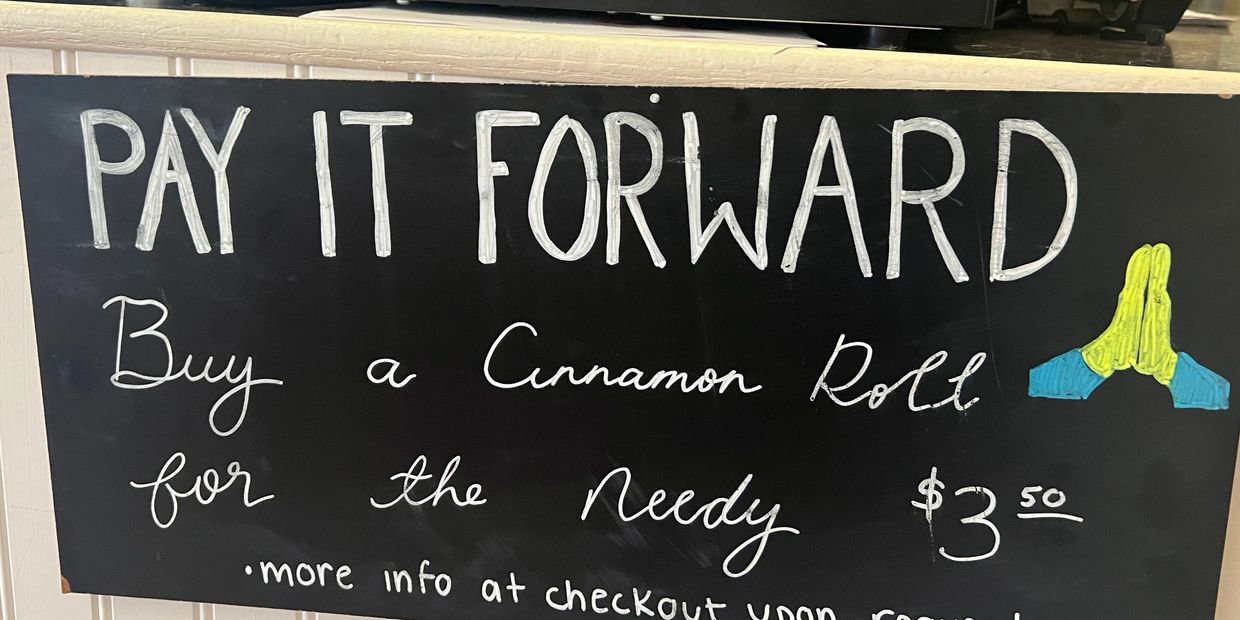 PAY IT FORWARD
Buy a Cinnamon Roll
for the Needy $3 50
•more info at checkout upon